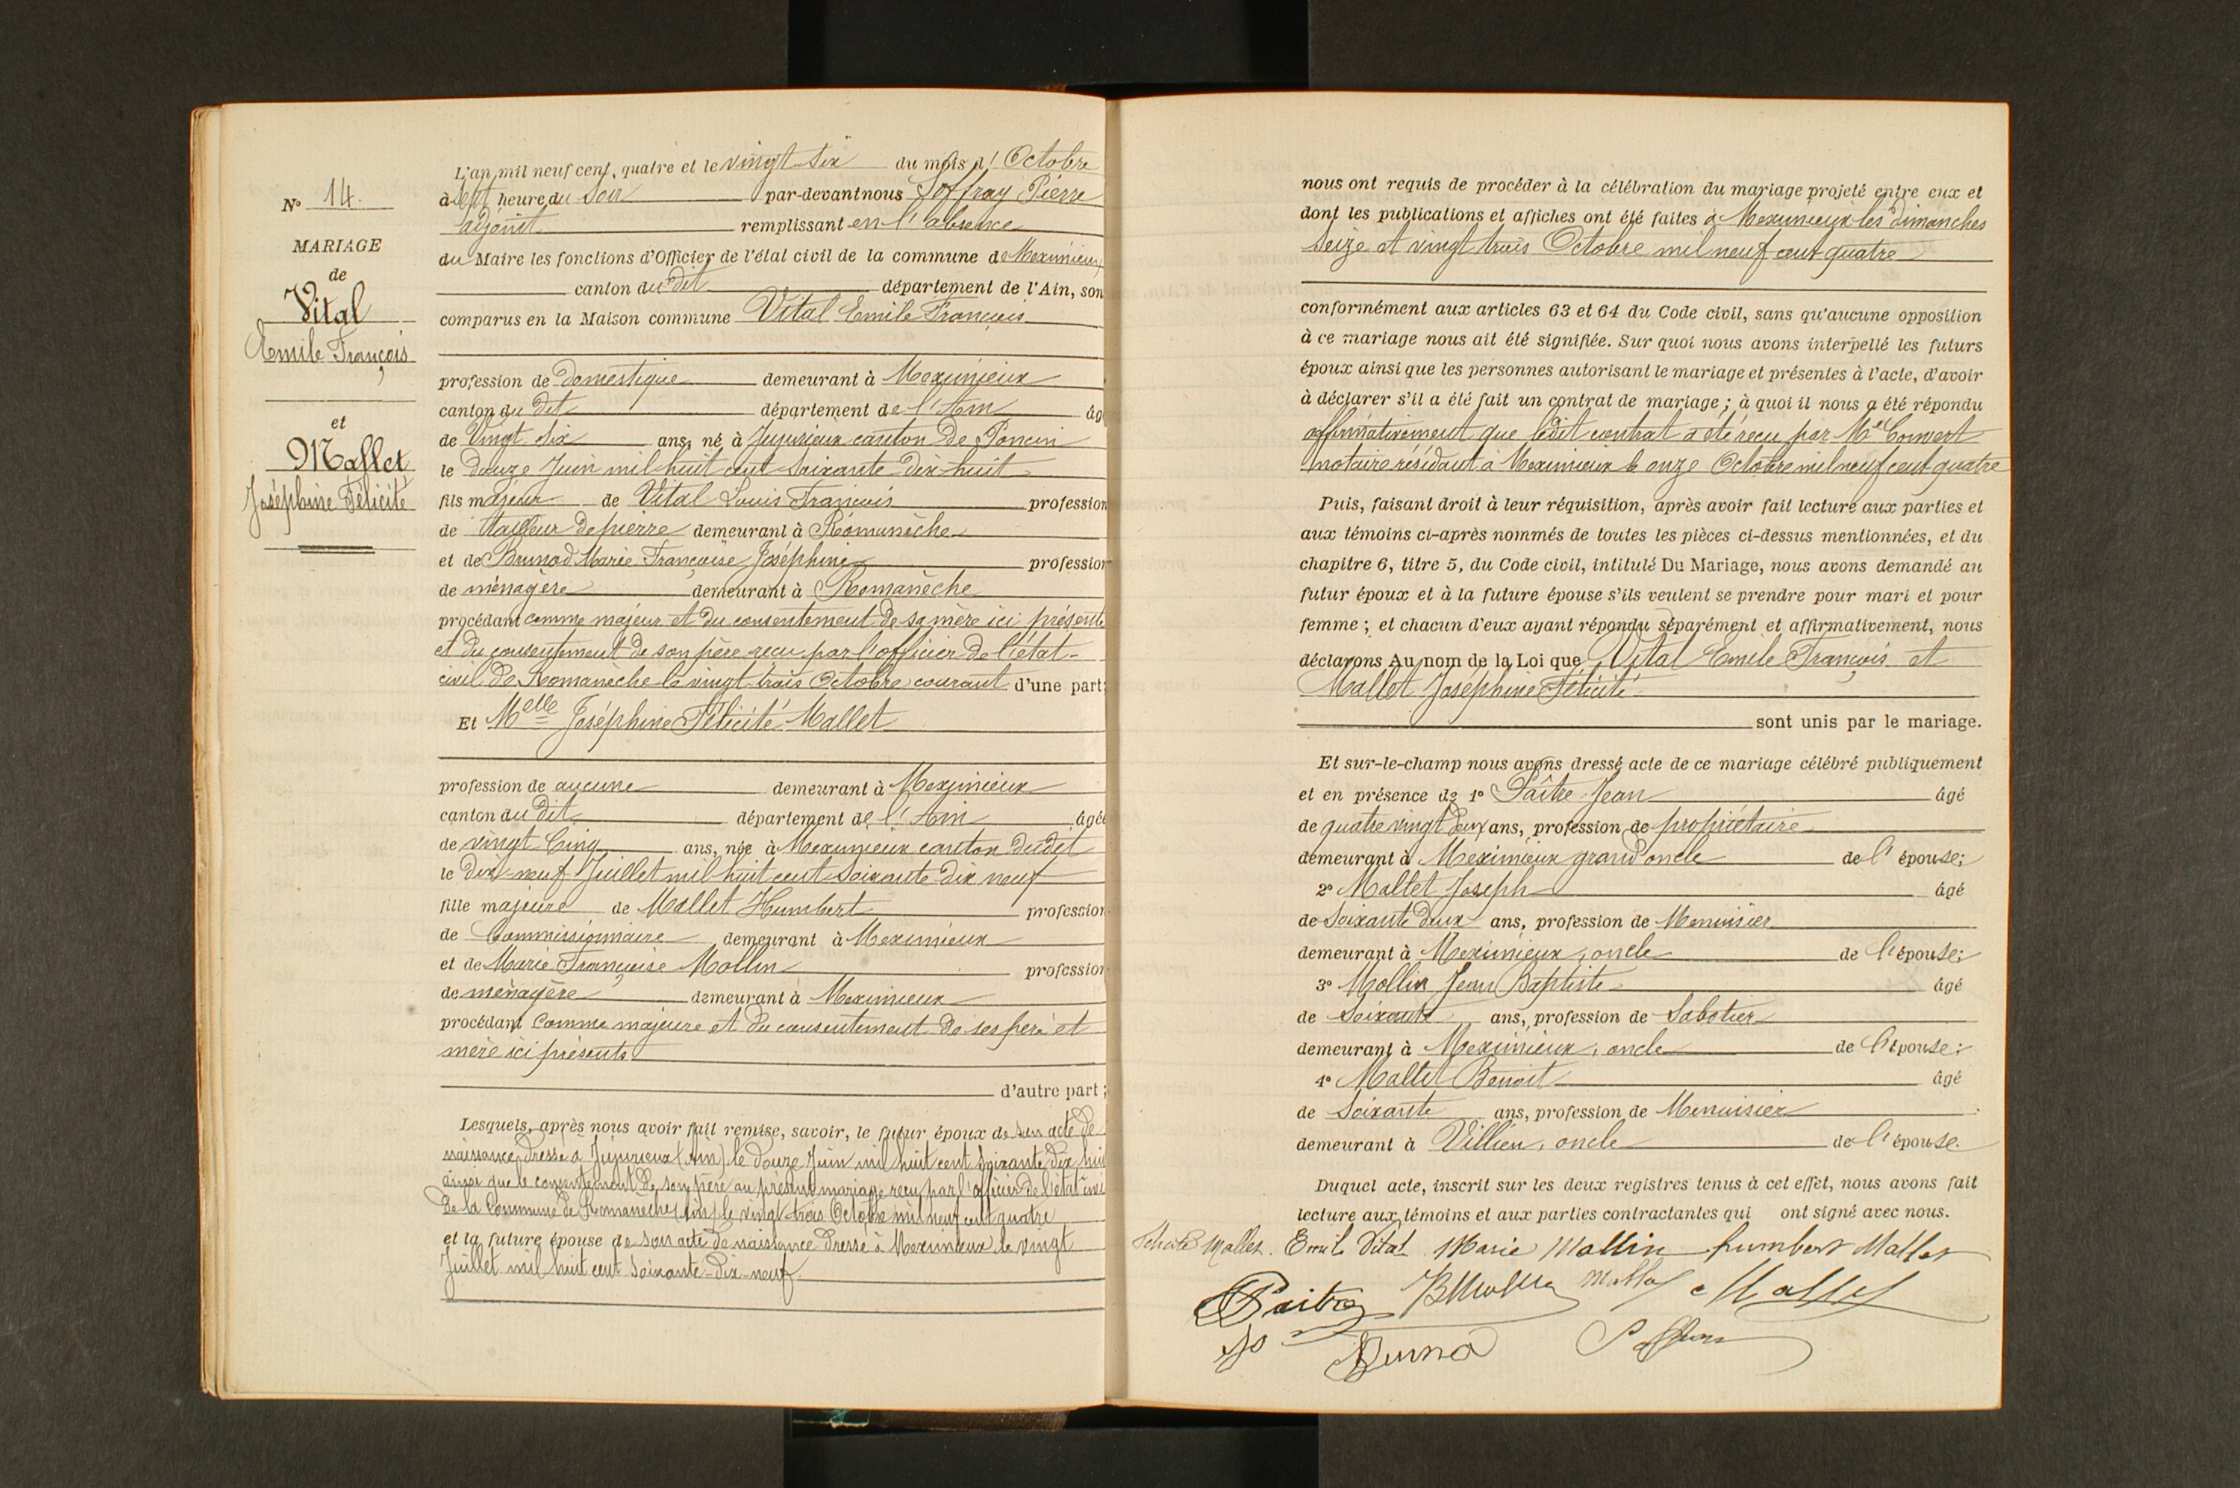 N° 14.
MARIAGE
de
Vital
Emile François
et
Mallet
Joséphine Félicité
L'an mil neuf cent, quatre et le vingt six du mois d'Octobre
à Sept heure du Soir par-devant nous Soffray Pierre
adjoint remplissant en l'absence
du Maire les fonctions d'Officier de l'état civil de la commune de Meximieux
canton du dit département de l'Ain, son
comparus en la Maison commune Vital Emile François
profession de domestique demeurant à Meximieux
canton du dit département de l'Ain âg
de Vingt Six ans, né à Jujurieux canton de Poncin
le douze Juin mil huit cent soixante dix huit
fils majeur de Vital Louis François profession
de tailleur de pierre demeurant à Romanèche
et de Brunod Marie Françoise Joséphine profession
de ménagère demeurant à Romanèche
procédant comme majeur et du consentement de sa mère ici présente
et du consentement de son père reçu par l'officier de l'état-
civil de Romanèche le vingt trois Octobre courant d'une part;
Et Melle Joséphine Félicité Mallet
profession de aucune demeurant à Meximieux
canton du dit département de l'Ain âgée
de vingt Cinq ans, née à Meximieux canton dudit
le dix-neuf Juillet mil huit cent soixante dix neuf
fille majeure de Mallet Humbert profession
de Commissionnaire demeurant à Meximieux
et de Marie Françoise Mollin profession
de ménagère demeurant à Meximieux
procédant Comme majeure et du consentement de ses père et
mère ici présents
d'autre part;
Lesquels, après nous avoir fait remise, savoir, le futur époux de son acte de
naissance dressé à Jujurieux (Ain) le douze Juin mil huit cent soixante dix huit
ainsi que le consentement de son père au présent mariage reçu par l'officier de l'état civi
de la Commune de Romanèche (Ain) le vingt trois Octobre mil neuf cent quatre
et la future épouse de son acte de naissance dressé à Meximieux le vingt
Juillet mil huit cent soixante-dix-neuf.
nous ont requis de procéder à la célébration du mariage projeté entre eux et
dont les publications et affiches ont été faites à Meximieux les dimanches
seize et vingt trois Octobre mil neuf cent quatre
conformément aux articles 63 et 64 du Code civil, sans qu'aucune opposition
à ce mariage nous ait été signifiée. Sur quoi nous avons interpellé les futurs
époux ainsi que les personnes autorisant le mariage et présentes à l'acte, d'avoir
à déclarer s'il a été fait un contrat de mariage; à quoi il nous a été répondu
affirmativement que ledit contrat a été reçu par Me Convert
notaire résidant à Meximieux le onze Octobre mil neuf cent quatre
Puis, faisant droit à leur réquisition, après avoir fait lecture aux parties et
aux témoins ci-après nommés de toutes les pièces ci-dessus mentionnées, et du
chapitre 6, titre 5, du Code civil, intitulé Du Mariage, nous avons demandé au
futur époux et à la future épouse s'ils veulent se prendre pour mari et pour
femme; et chacun d'eux ayant répondu séparément et affirmativement, nous
déclarons Au nom de la Loi que Vital Emile François et
Mallet Joséphine Félicité
sont unis par le mariage.
Et sur-le-champ nous avons dressé acte de ce mariage célébré publiquement
et en présence de 1° Paître Jean âgé
de quatre vingt deux ans, profession de propriétaire
demeurant à Meximieux grand oncle de l'épouse;
2° Mallet Joseph âgé
de Soixante deux ans, profession de Menuisier
demeurant à Meximieux, oncle de l'épouse;
3° Mollin Jean Baptiste âgé
de Soixante ans, profession de Sabotier
demeurant à Meximieux, oncle de l'épouse;
4° Mallet Benoit âgé
de Soixante ans, profession de Menuisier
demeurant à Villieu, oncle de l'épouse.
Duquel acte, inscrit sur les deux registres tenus à cet effet, nous avons fait
lecture aux témoins et aux parties contractantes qui ont signé avec nous.
Mallet. Emile Vital Marie Mollin humbert Mallet
Paitre Mallet Mallet